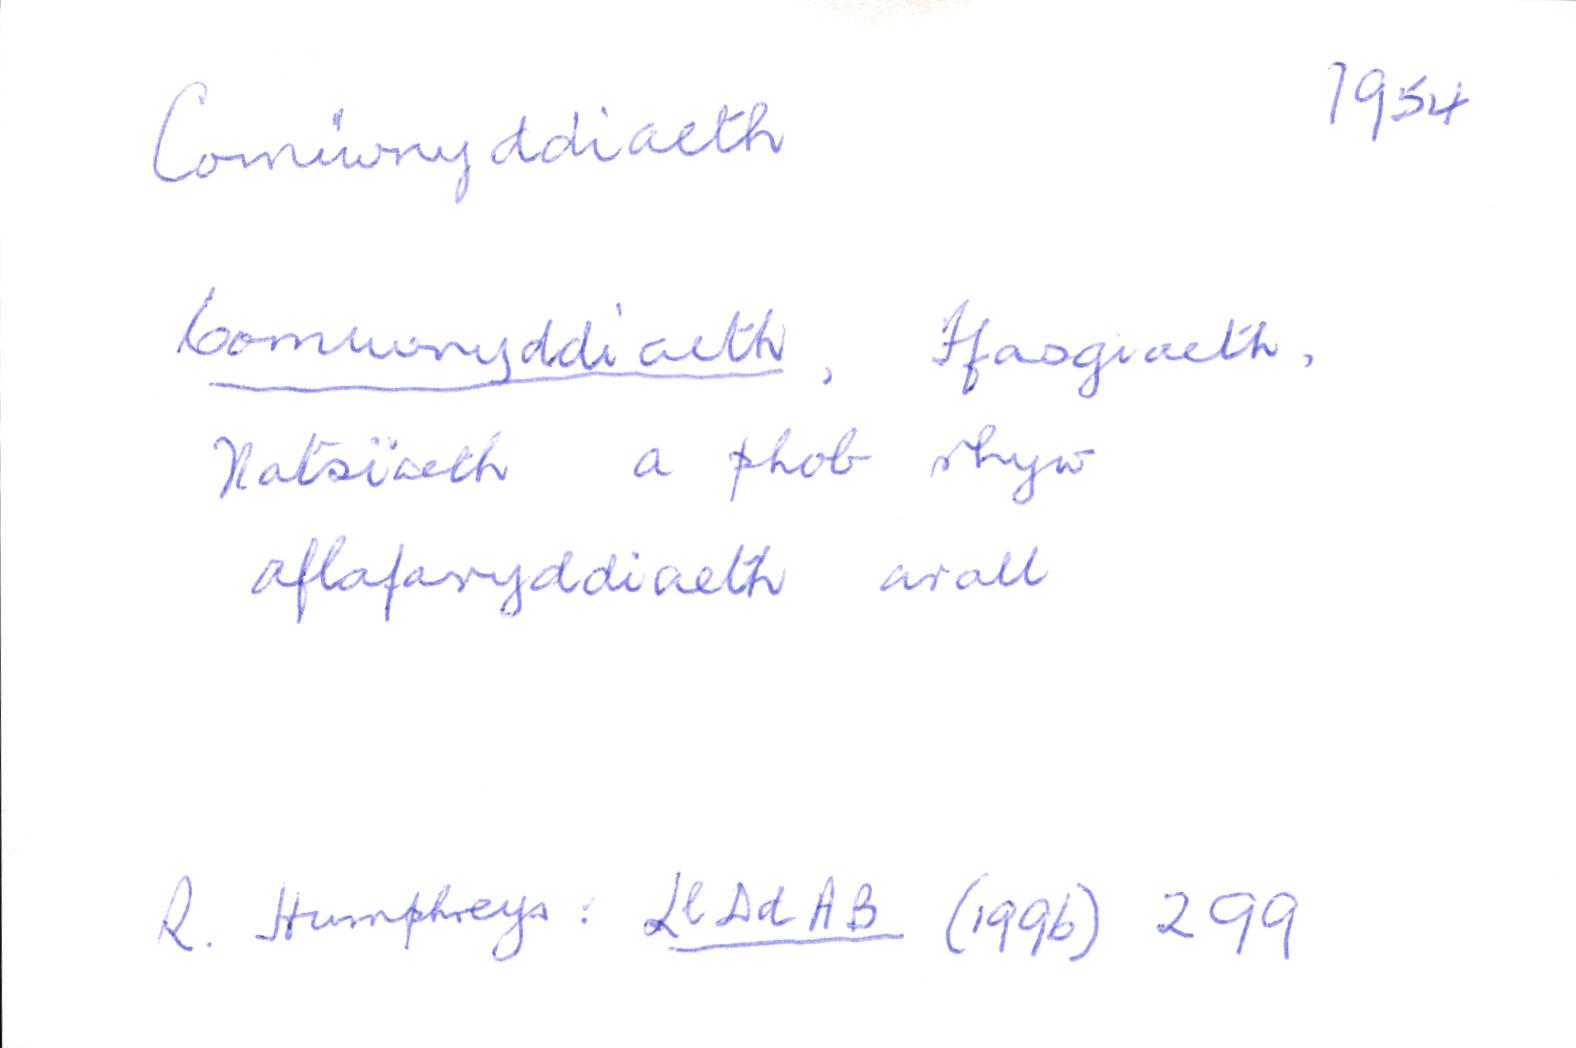 Comiwnyddiaeth 1954
Comiwnyddiaeth, Ffasgiaeth,
Natsïaeth a phob rhyw
aflafaryddiaeth arall
R. Humphreys: LlDdAB (1996) 299